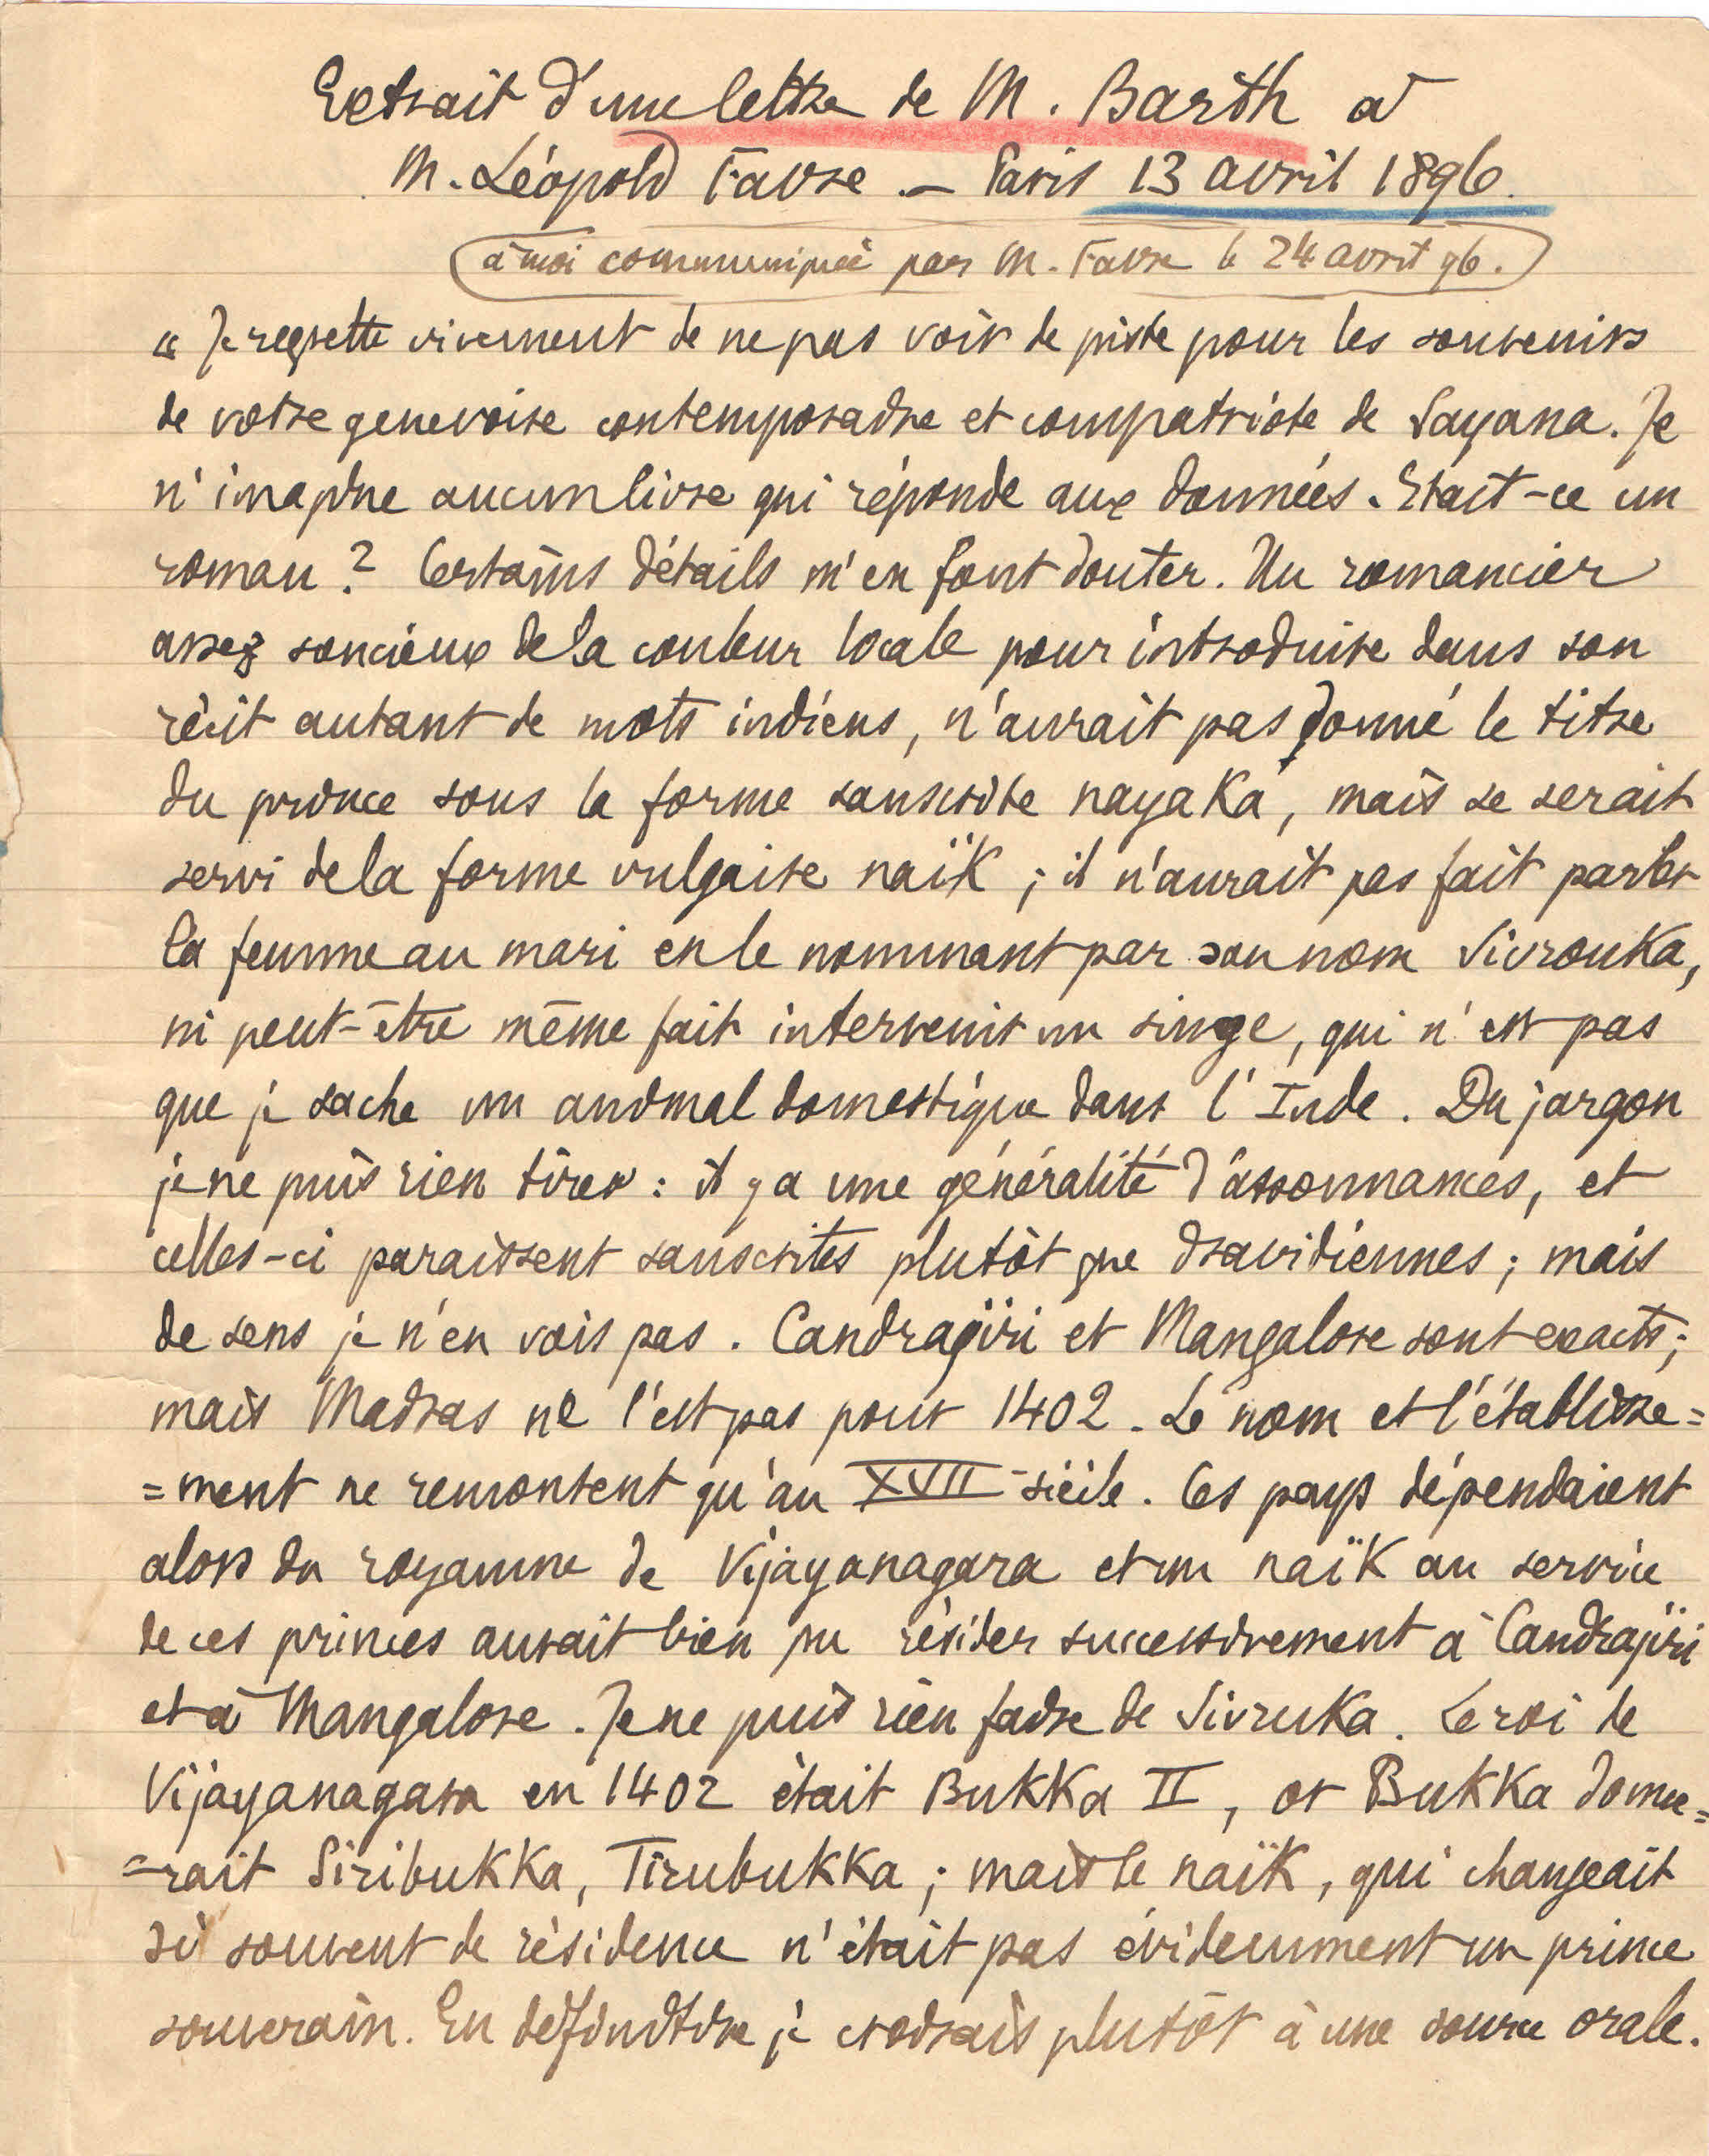 Extrait d'une lettre de M. Barth à
M. Léopold Favre. — Paris 13 avril 1896.
à moi communiquée par M. Favre le 24 avril 96.
« Je regrette vivement de ne pas voir de piste pour les souvenirs
de votre genevoise contemporaine et compatriote de Sayana. Je
n'imagine aucun livre qui réponde aux données. Etait-ce un
roman ? Certains détails m'en font douter. Un romancier
assez soucieux de la couleur locale pour introduire dans son
récit autant de mots indiens, n'aurait pas donné le titre
du prince sous la forme sanscrite nayaka, mais se serait
servi de la forme vulgaire naïk ; il n'aurait pas fait parler
la femme au mari en le nommant par son nom Sivrouka,
ni peut-être même fait intervenir un singe, qui n'est pas
que je sache un animal domestique dans l'Inde. Du jargon
je ne puis rien tirer : il y a une généralité d'assonnances, et
celles-ci paraissent sanscrites plutôt que dravidiennes ; mais
de sens je n'en vois pas. Candragiri et Mangalore sont exacts ;
mais Madras ne l'est pas pour 1402. Le nom et l'établisse=
=ment ne remontent qu'au XVII siècle. Ces pays dépendaient
alors du royaume de Vijayanagara et un naïk au service
de ces princes aurait bien pu résider successivement à Candragiri
et à Mangalore. Je ne puis rien faire de Sivruka. Le roi de
Vijayanagara en 1402 était Bukka II, or Bukka donne=
=rait Siribukka, Tirubukka ; mais le naïk, qui changeait
si souvent de résidence n'était pas évidemment un prince
souverain. En définitive je croirais plutôt à une source orale.